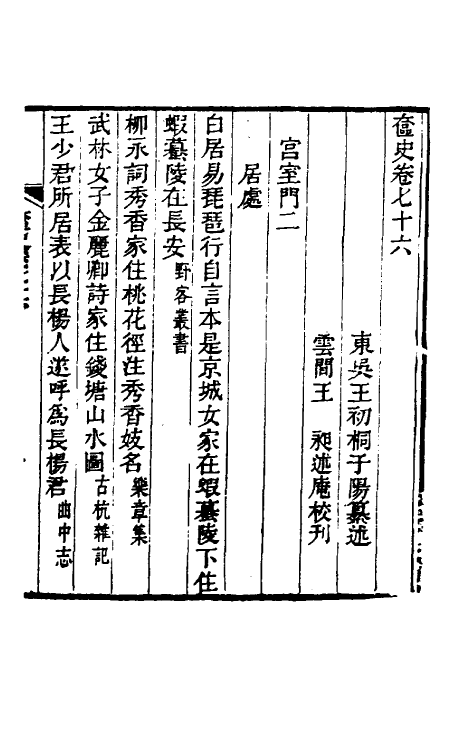 奩史卷七十六
東吳王初桐子陽纂述
雲間王　昶述庵校刊
宮室門二
居處
白居易琵琶行自言本是京城女家在蝦蟇陵下住
蝦蟇陵在長安野客叢書
柳永詞秀香家住桃花徑注秀香妓名樂章集
武林女子金麗卿詩家住錢塘山水圖古杭雜記
王少君所居表以長楊人遂呼爲長楊君曲中志